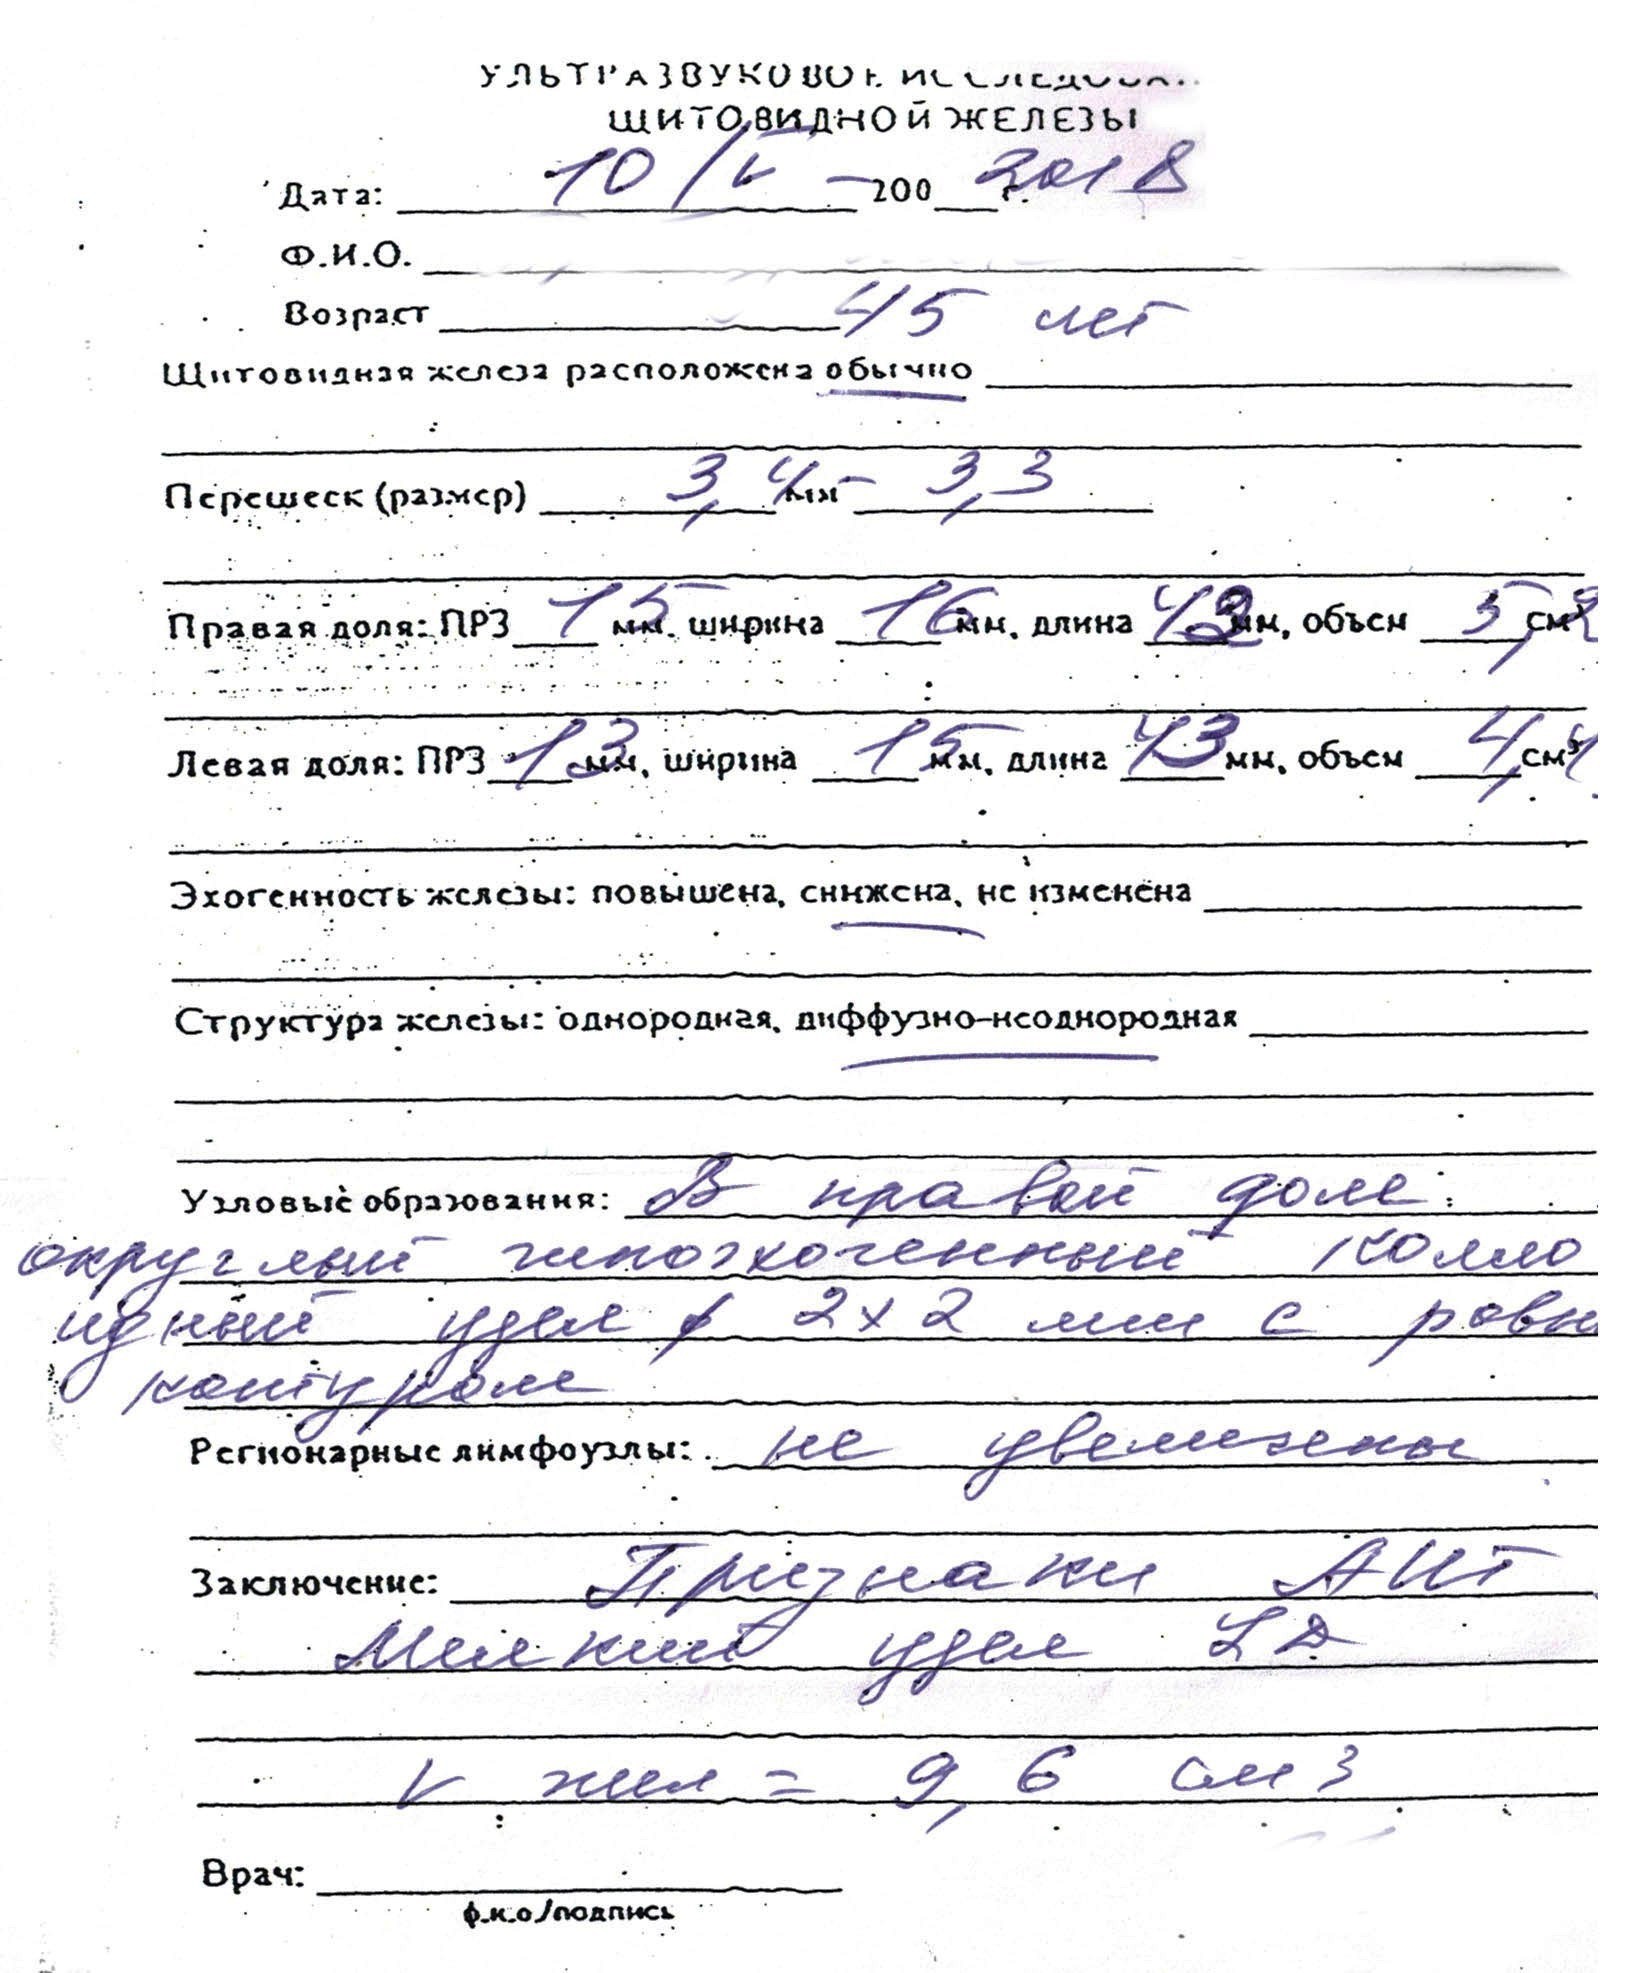 УЛЬТРАЗВУКОВОЕ ИССЛЕДОВАН
ЩИТОВИДНОЙ ЖЕЛЕЗЫ
Дата: 10/V - 200 2018 г.
Ф.И.О.
Возраст 45 лет
Щитовидная железа расположена обычно
Перешеек (размер) 3,4 мм - 3,3
Правая доля: ПРЗ 15 мм. ширина 16 мм, длина 42 мм, объем 5,2 см³
Левая доля: ПРЗ 13 мм, ширина 15 мм, длина 43 мм, объем 4,4 см³
Эхогенность железы: повышена, снижена, не изменена
Структура железы: однородная, диффузно-неоднородная
Узловые образования: В правой доле:
округлый гипоэхогенный колло
идный узел ∅ 2x2 мм с ровн
контуром
Регионарные лимфоузлы: не увеличены
Заключение: Признаки АИТ
Мелкий узел LD
V жел = 9,6 см3
Врач:
ф.и.о/подпись